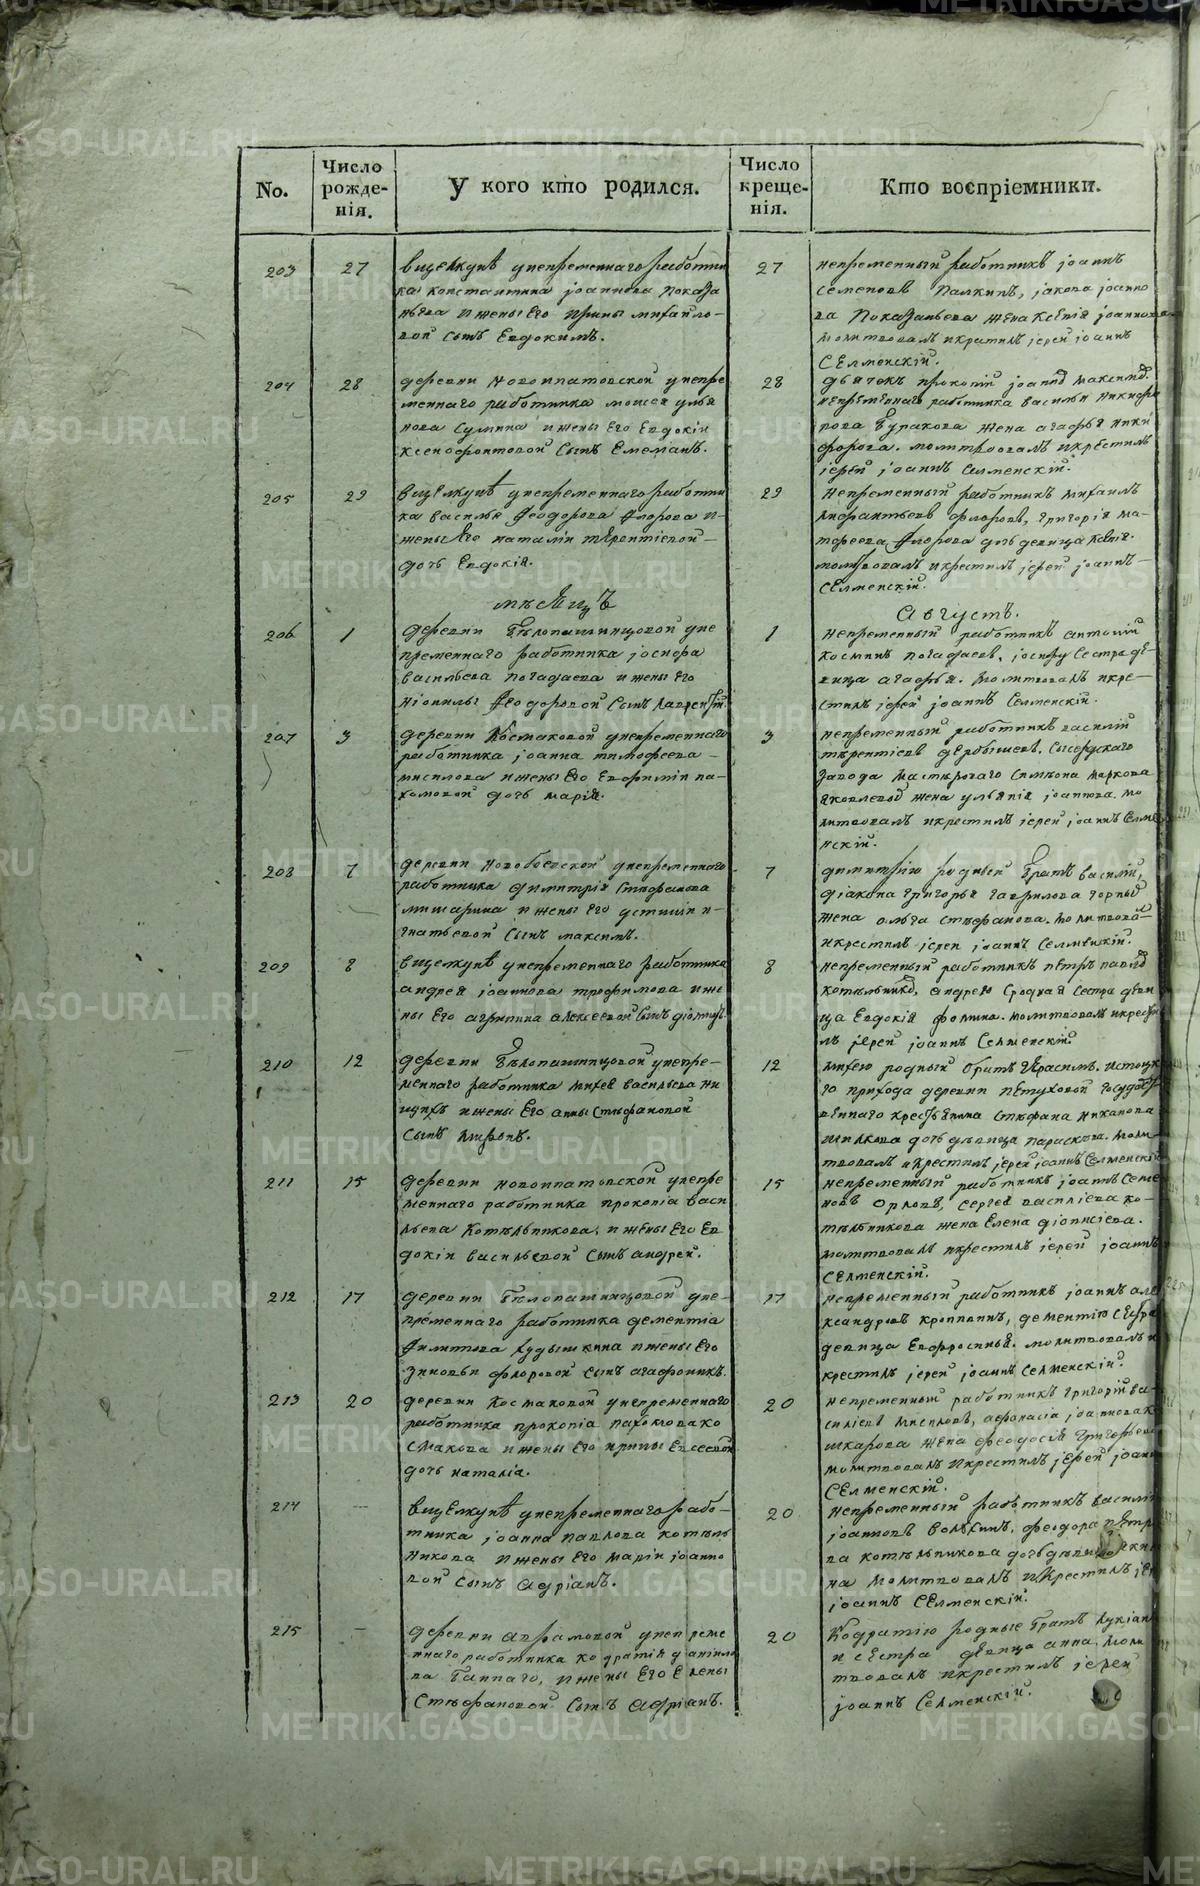 No.
Число рожденія.
У кого кто родился.
Число крещенія.
Кто воспріемники.
203
27
вщелкунѣ унепременнаго работни
ка константина іоаннова Показа
ньева и жены Его Ирины михайло-
вой сынъ Евдокимъ.
27
непременный работникъ іоаннъ
семеновъ Палкинъ, іакова іоанно
ва Показаньева жена Ксенія іоаннова
молитвовалъ и крѣстилъ іерей іоаннъ
Селменскій.
204
28
деревни новоипатовской унепре
меннаго работника моисея улья
нова Сумина и жены Его Евдокіи
ксенофонтовой Сынъ Емеліанъ.
28
дьячекъ прокопій іоаннов максимов.
непременнаго работника василья никифо
рова Бункова жена агафья ники
форова. молитвовалъ и крестилъ
іерей іоаннъ Селменскій.
205
29
вщелкунѣ унепременнаго работни
ка василья Феодорова Флорова и
жены Его наталіи терентіевой
дочь Евдокія.
29
Непременный работникъ михаилъ
ферова, Флорова дочь девица
молитвовалъ и крестилъ іерей іоаннъ
Селменскій.
мѣсяцъ
Августъ.
206
1
деревни Бѣлопашинцовой уне
пременнаго работника іосифа
васильева погадаева и жены Его
Неонилы Феодоровой Сынъ лаврентій.
1
непременный работникъ антоній
Космин погадаевъ, іосифу Сестра де-
вица агафья. молитвовалъ и кре-
стилъ іерей іоаннъ Селменскій.
207
3
деревни Космаковой унепременнаго
работника іоанна тимофеева
мисилова и жены Его Евфиміи па-
хомовой дочь марія.
3
непременный работникъ василій
терентіевъ дербышевъ. Сысертскаго
завода мастероваго Симеона маркова
Яковлевой жена ульянія іоаннова. мо
литвовалъ и крестилъ іерей іоаннъ Селме
нскій.
208
7
деревни новобоевской унепременнаго
работника димитрія Стефанова
мишарина и жены Его устиніи и-
гнатьевой Сынъ максимъ.
7
димитрію родный братъ василій,
діакона григорья гаврилова горных
жена ольга стефанова. молитвовалъ
и крестилъ іереи іоаннъ Селменскій.
209
8
вщелкунѣ унепременнаго работника
андрея іоаннова трофимова и же
ны Его агрипина алексеевой Сынъ
8
непременный работникъ петръ павлов
Котельников, андрею Сродная Сестра деви
ца Евдокія фомина. молитвовалъ и крести
лъ іерей іоаннъ Селменскій.
210
12
деревни Бѣлопашинцовой унепре-
меннаго работника михея васильева ни
щихъ и жены Его анны Стефановой
Сынъ миронъ.
12
михею родный братъ Герасимъ. истоцка
го прихода деревни петуховой государ
веннаго крестьянина Стефана никанова
шилкова дочь девица параскева. моли
твовалъ и крестилъ іерей іоаннъ Селменскій
211
15
деревни новоипатовской унепре
меннаго работника прокопія васи
льева Котельникова, и жены Его Ев
докіи васильевой Сынъ андрей.
15
непременный работникъ іоаннъ Семе
новъ Орловъ, сергея василіева ко-
тельникова жена Елена діонисіева.
молитвовалъ и крестилъ іерей іоаннъ
Селменскій.
212
17
деревни Бѣлопашинцовой уне-
пременнаго работника дементіа
Филипова кудышкина и жены Его
зиновьи флоровой сынъ агафоникъ.
17
непременный работникъ іоаннъ але
ксандровъ кропанинъ, дементію Сестра
девица Евфросинья. молитвовалъ и
крестилъ іерей іоаннъ Селменскій.
213
20
деревни Космаковой унепременнаго
работника прокопія пахомова ко
смакова и жены Его ирины Евсеевой
дочь наталіа.
20
непременный работникъ григорій ва-
силіевъ мисиловъ, афонасія іоаннова ка
шкарова жена феодосія григорьева
молитвовалъ и крестилъ іерей іоаннъ
Селменскій.
214
—
вщелкунѣ унепременнаго рабо-
тника іоанна павлова котель
никова и жены Его маріи іоанно
вой сынъ адріанъ.
20
непременный работникъ василій
іоанновъ волкинъ, феодора петро
ва котельникова дочь девица
на молитвовалъ и крестилъ іерей
іоаннъ Селменскій.
215
—
деревни аврамовой унепреме
ннаго работника кодратія данило
ва банного, и жены Его Елены
Стефановой Сынъ адріанъ.
20
Кодратію родные братъ лукіанъ
и сестра девица анна, моли
твовалъ и крестилъ іерей
іоаннъ Селменскій.
METRIKI.GASO-URAL.RU